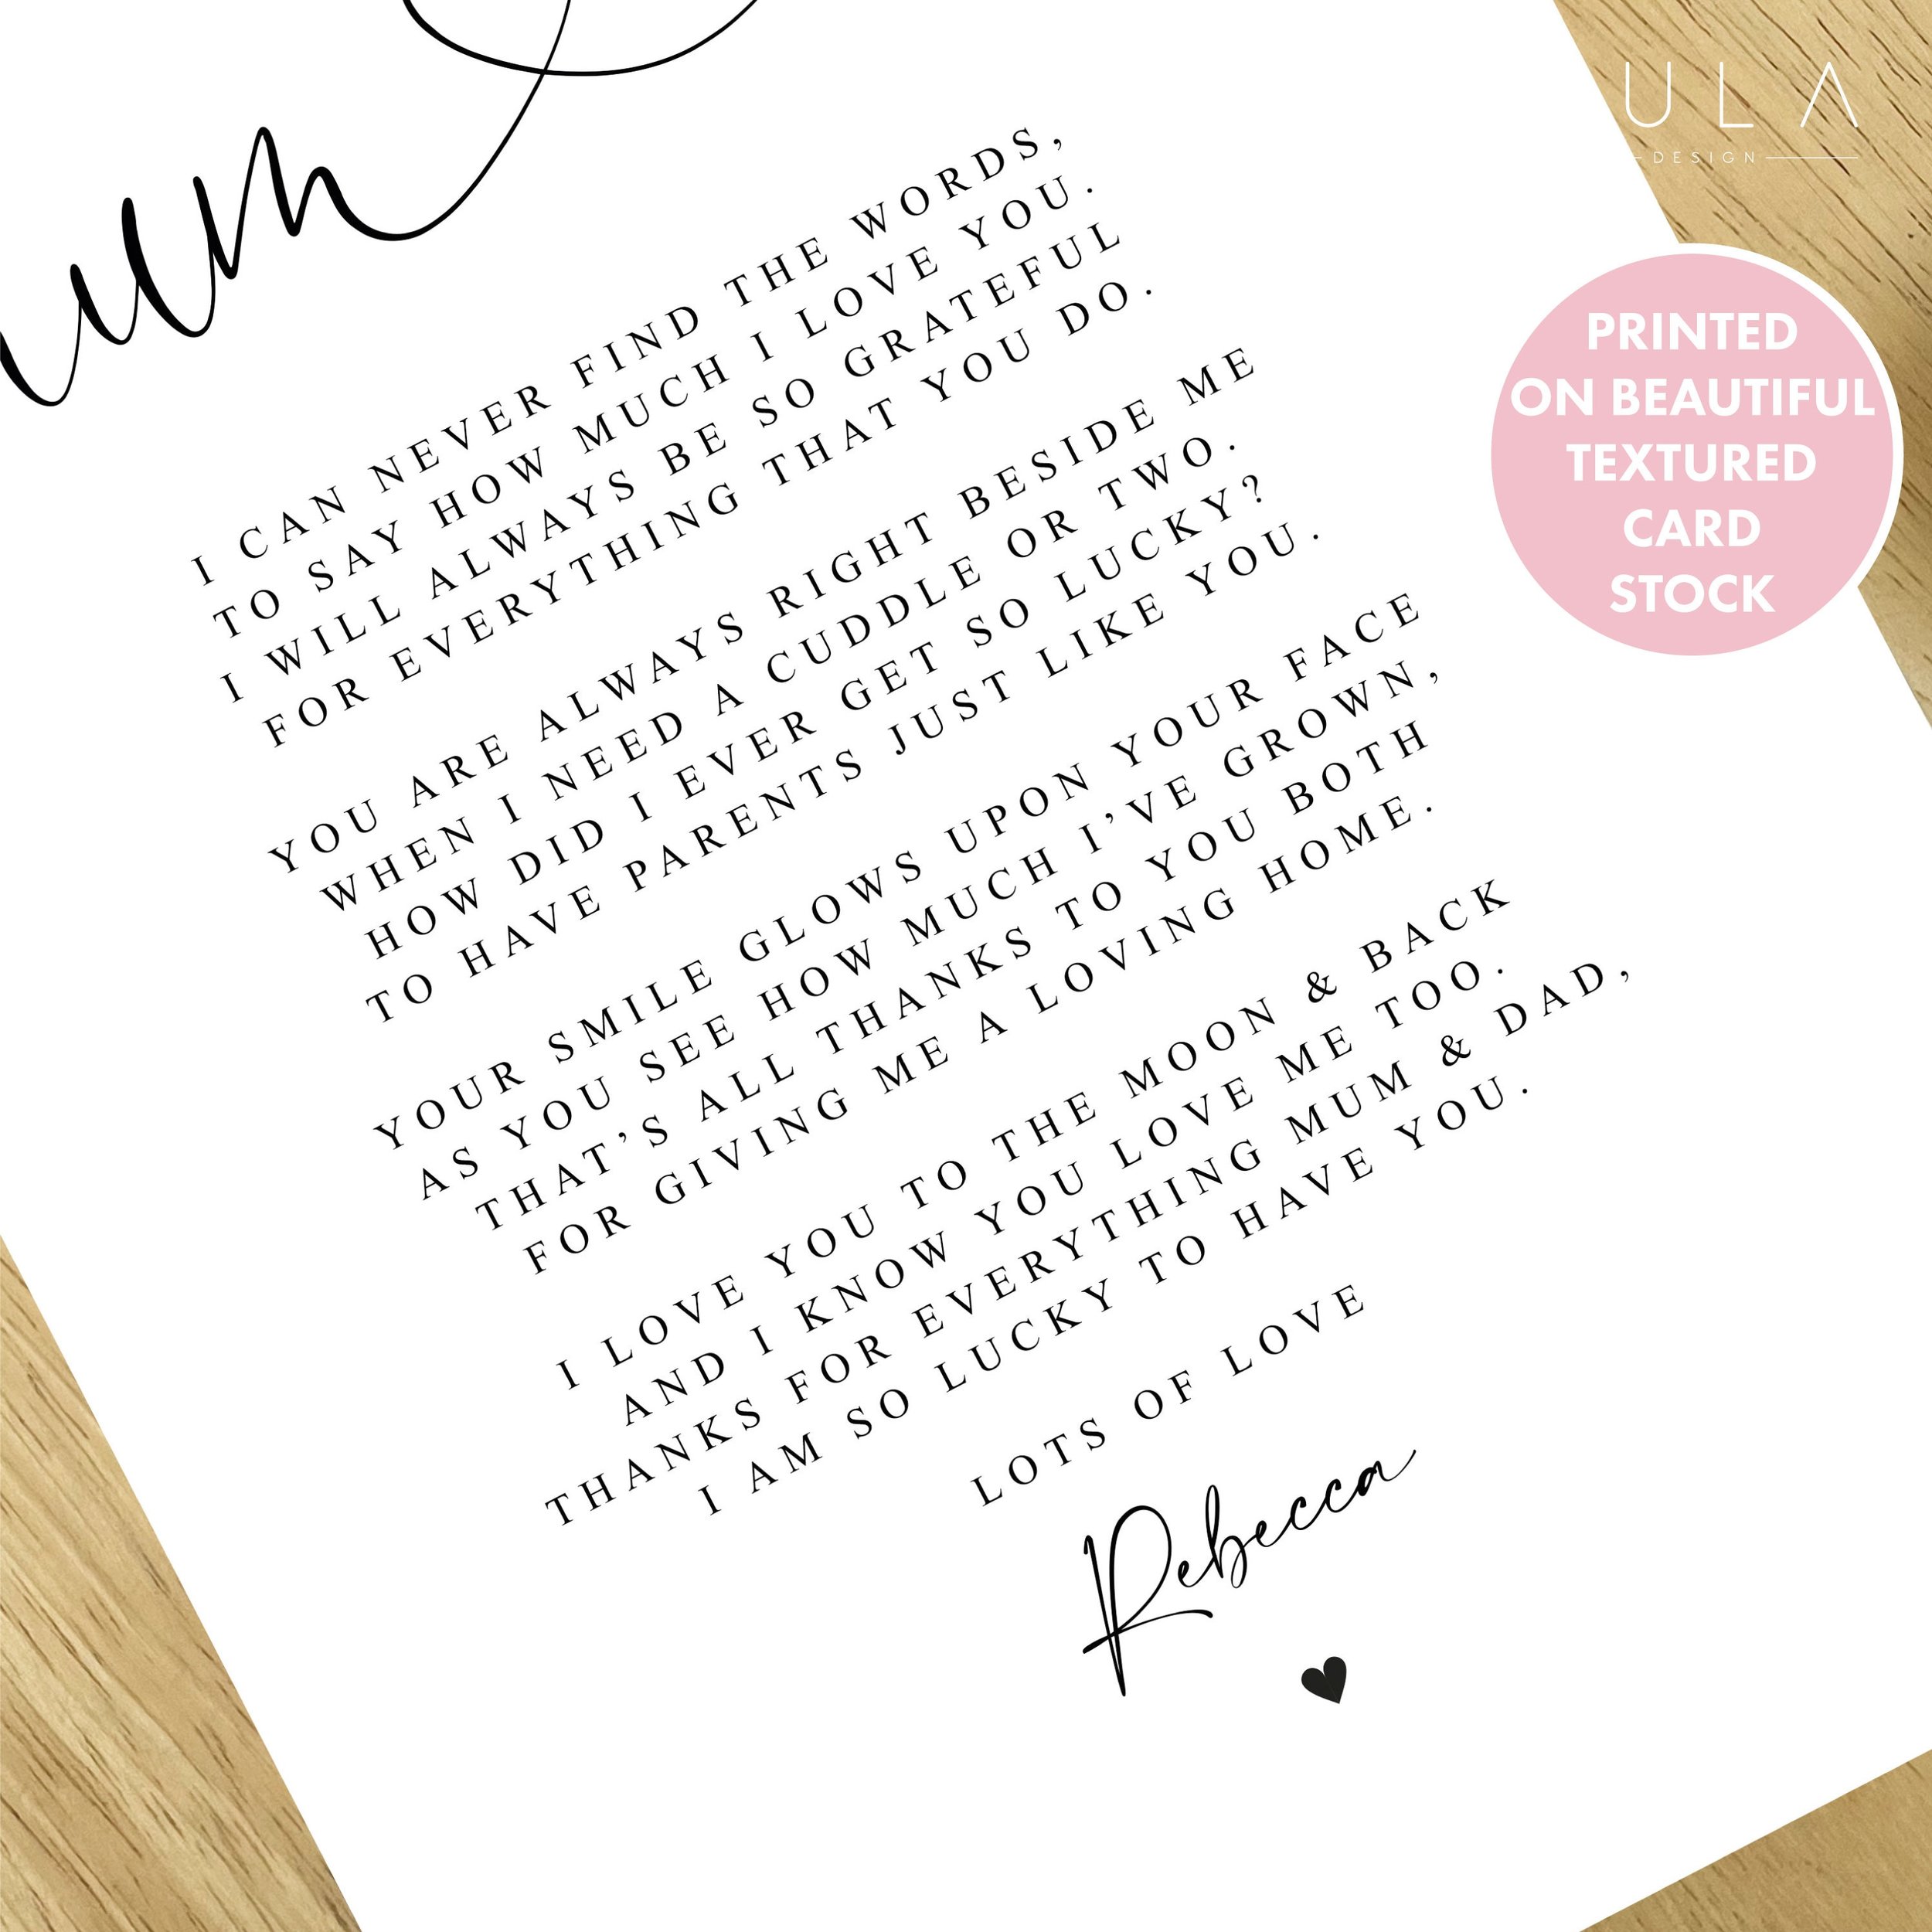 ULA
DESIGN
I CAN NEVER FIND THE WORDS,
TO SAY HOW MUCH I LOVE YOU.
I WILL ALWAYS BE SO GRATEFUL
FOR EVERYTHING THAT YOU DO.
YOU ARE ALWAYS RIGHT BESIDE ME
WHEN I NEED A CUDDLE OR TWO.
HOW DID I EVER GET SO LUCKY?
TO HAVE PARENTS JUST LIKE YOU.
YOUR SMILE GLOWS UPON YOUR FACE
AS YOU SEE HOW MUCH I'VE GROWN,
THAT'S ALL THANKS TO YOU BOTH
FOR GIVING ME A LOVING HOME.
I LOVE YOU TO THE MOON & BACK
AND I KNOW YOU LOVE ME TOO.
THANKS FOR EVERYTHING MUM & DAD,
I AM SO LUCKY TO HAVE YOU.
LOTS OF LOVE
Rebecca
PRINTED
ON BEAUTIFUL
TEXTURED
CARD
STOCK